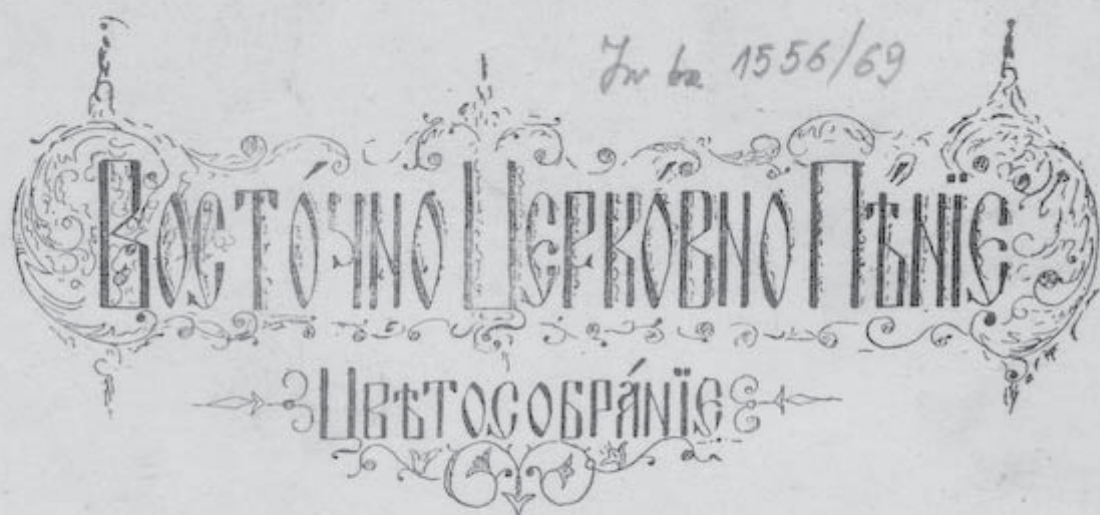 1556/69
Восто́чно Церко́вно Пѣ́нїе
Цвѣтособра́нїе